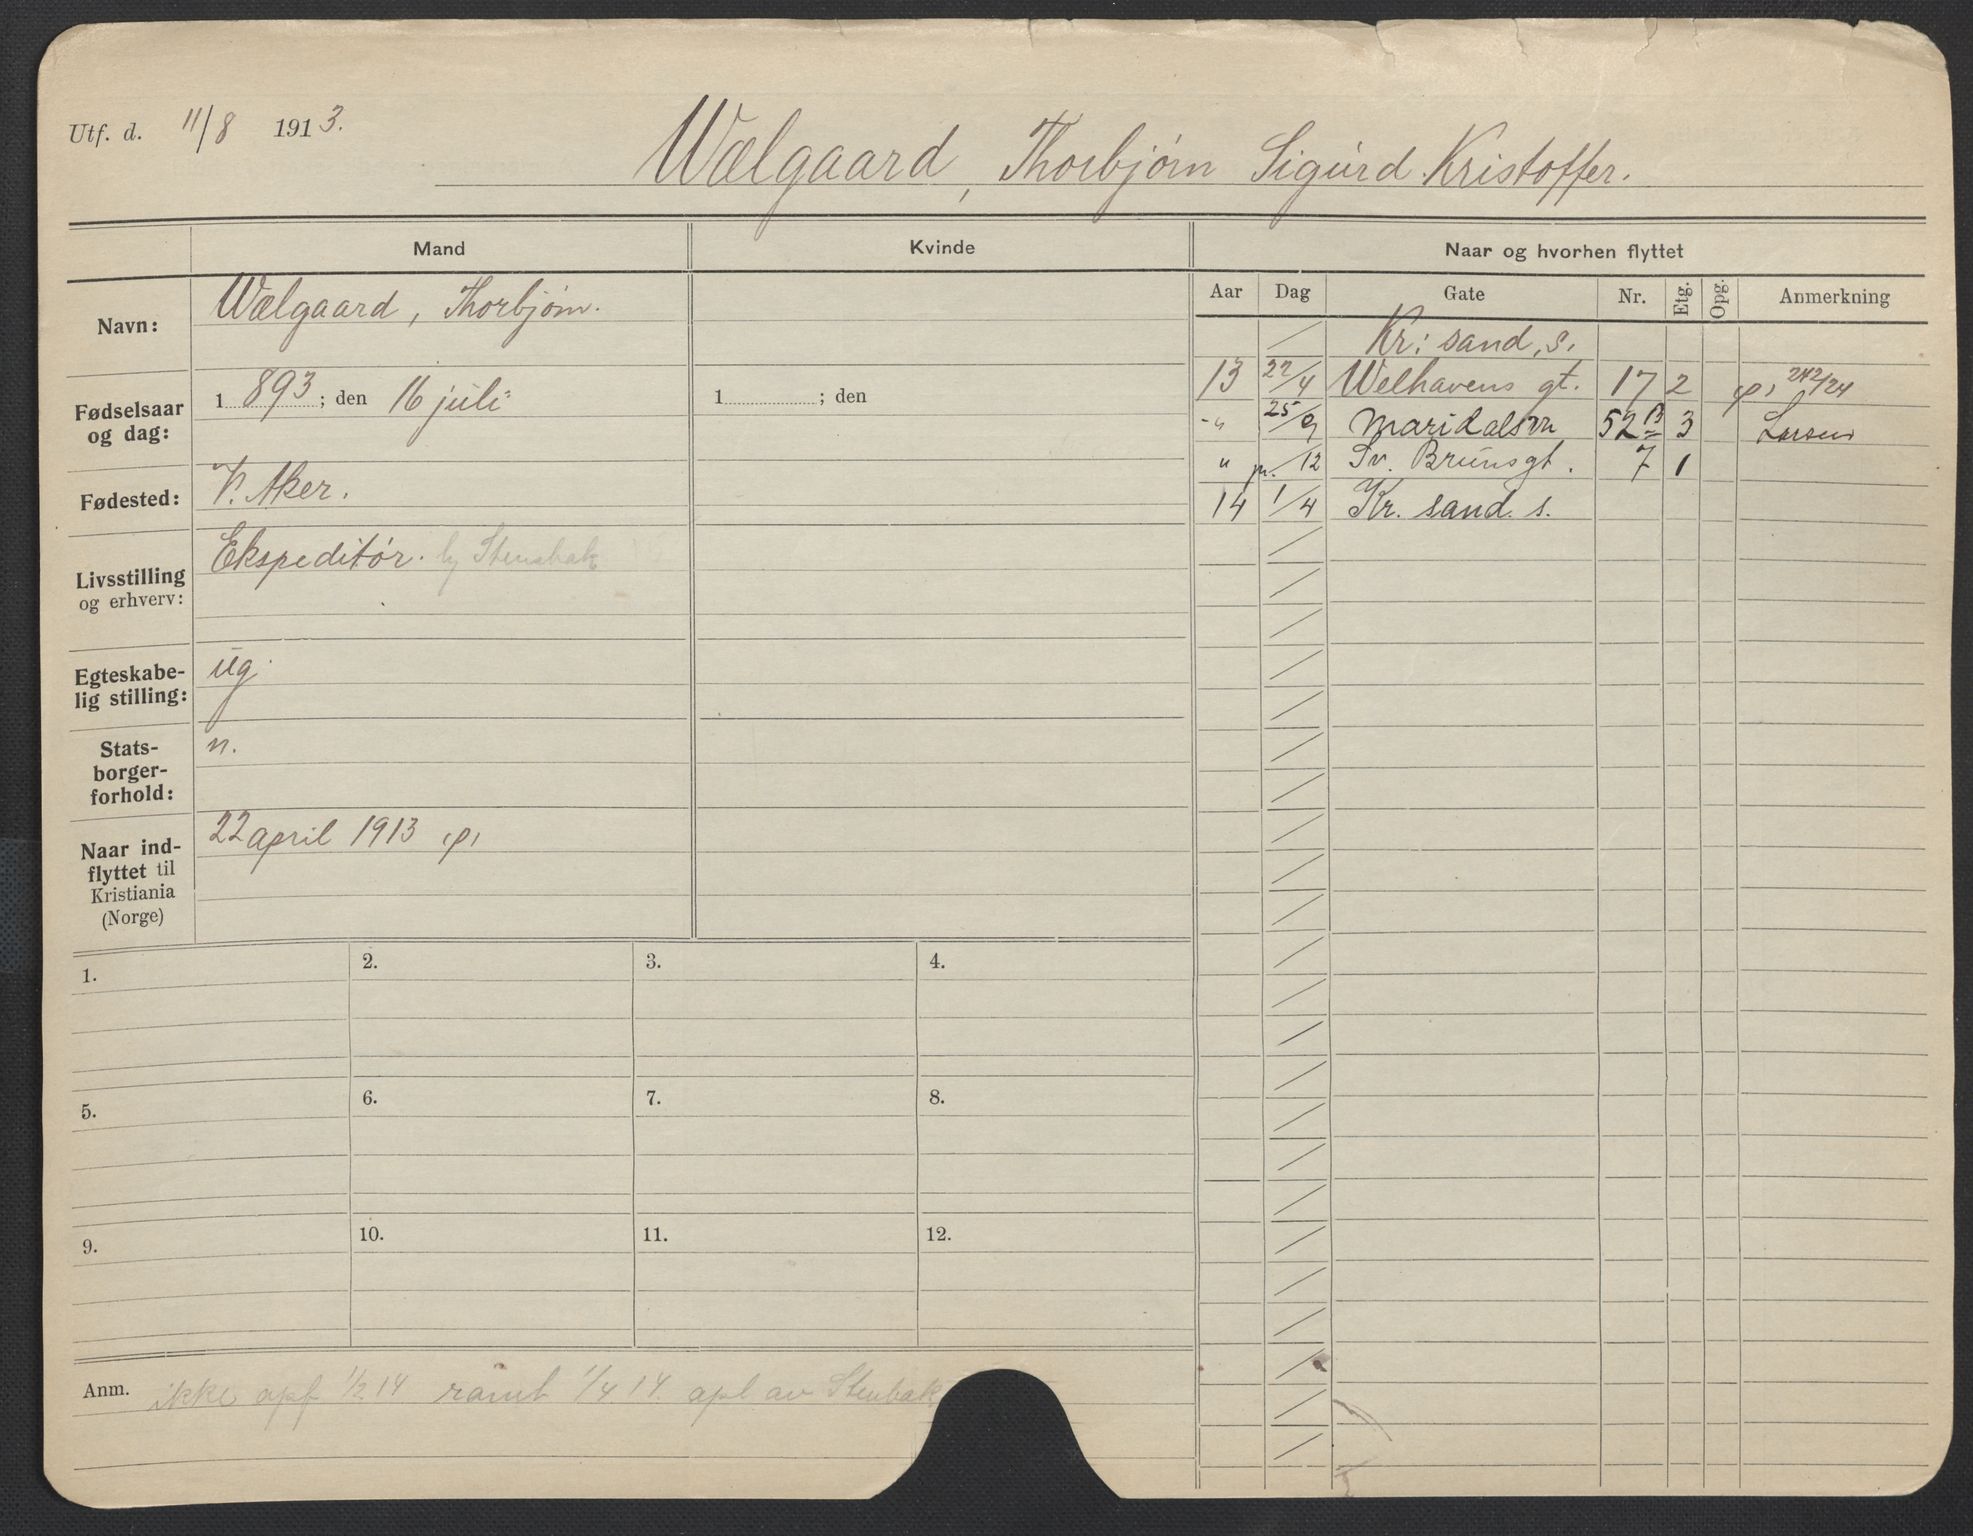 Utf. d. 11/8 1913.
Wælgaard, Thorbjørn Sigurd Kristoffer.
Mand
Kvinde
Naar og hvorhen flyttet
Navn: Wælgaard, Thorbjørn.
Fødselsaar og dag: 1893; den 16 juli
1 ; den
Fødested: V. Aker.
Livsstilling og erhverv: Ekspeditør. hj Stensbak
Egteskabelig stilling: ug.
Statsborgerforhold: n.
Naar indflyttet til Kristiania (Norge) 22 april 1913 p,
Aar Dag Gate Nr. Etg. Opg. Anmerkning
Kr: sand, s.
13 22/4 Welhavens gt. 17 2 p, 242/24
-"- 25/9 Maridalsvn 52 B 3 Larsen
" /12 Sv. Brunsgt. 7 1
14 1/4 Kr. sand. s.
1.
2.
3.
4.
5.
6.
7.
8.
9.
10.
11.
12.
Anm. ikke opf 1/2 14 samt 1/4 14. opl av Stenbak